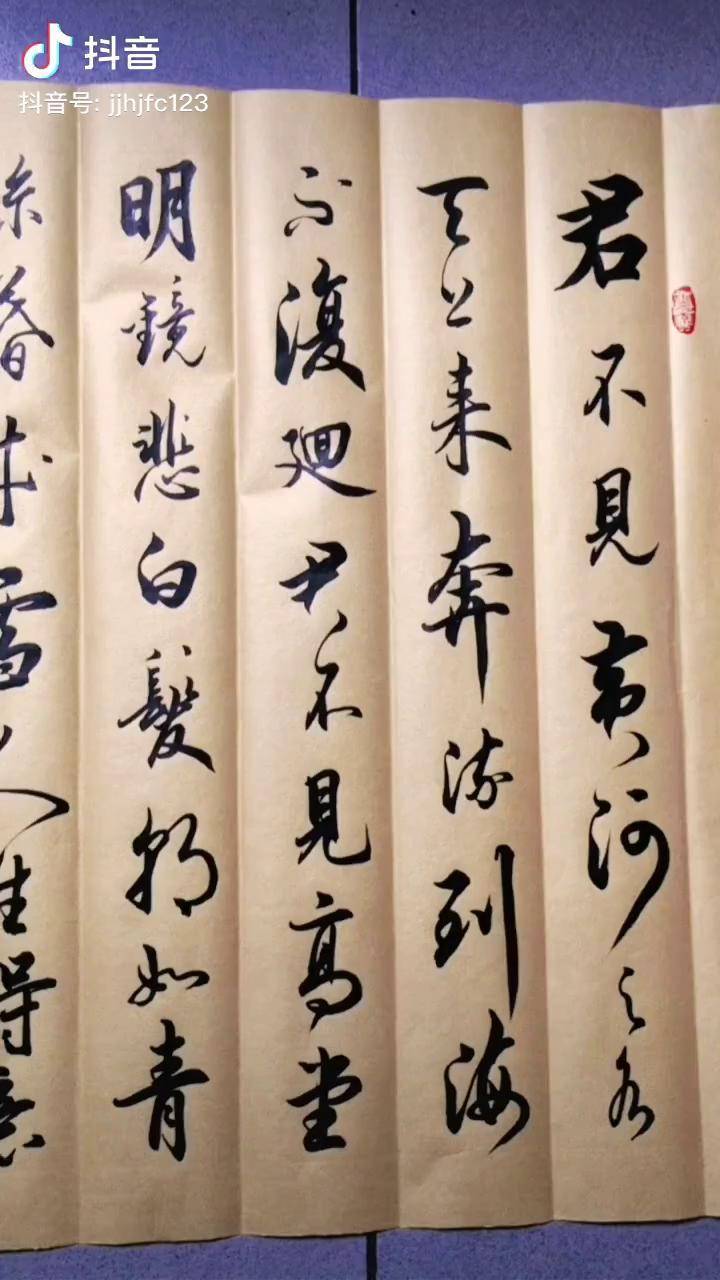 抖音
抖音号: jjhjfc123
君不見黄河之水
天上来奔流到海
不復迴君不見高堂
明鏡悲白髮朝如青
絲暮成雪人生得意